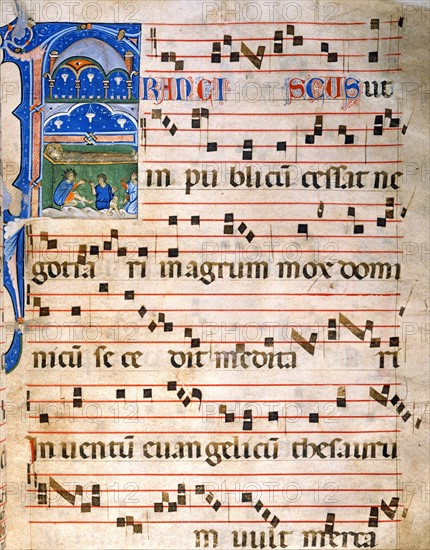 FRANCISCUS ut
in pu blicū cessat ne
gotia ri in agrum mox domi
nicū se ce dit medita ri
Inventū euangelicū thesauru
m vult merca